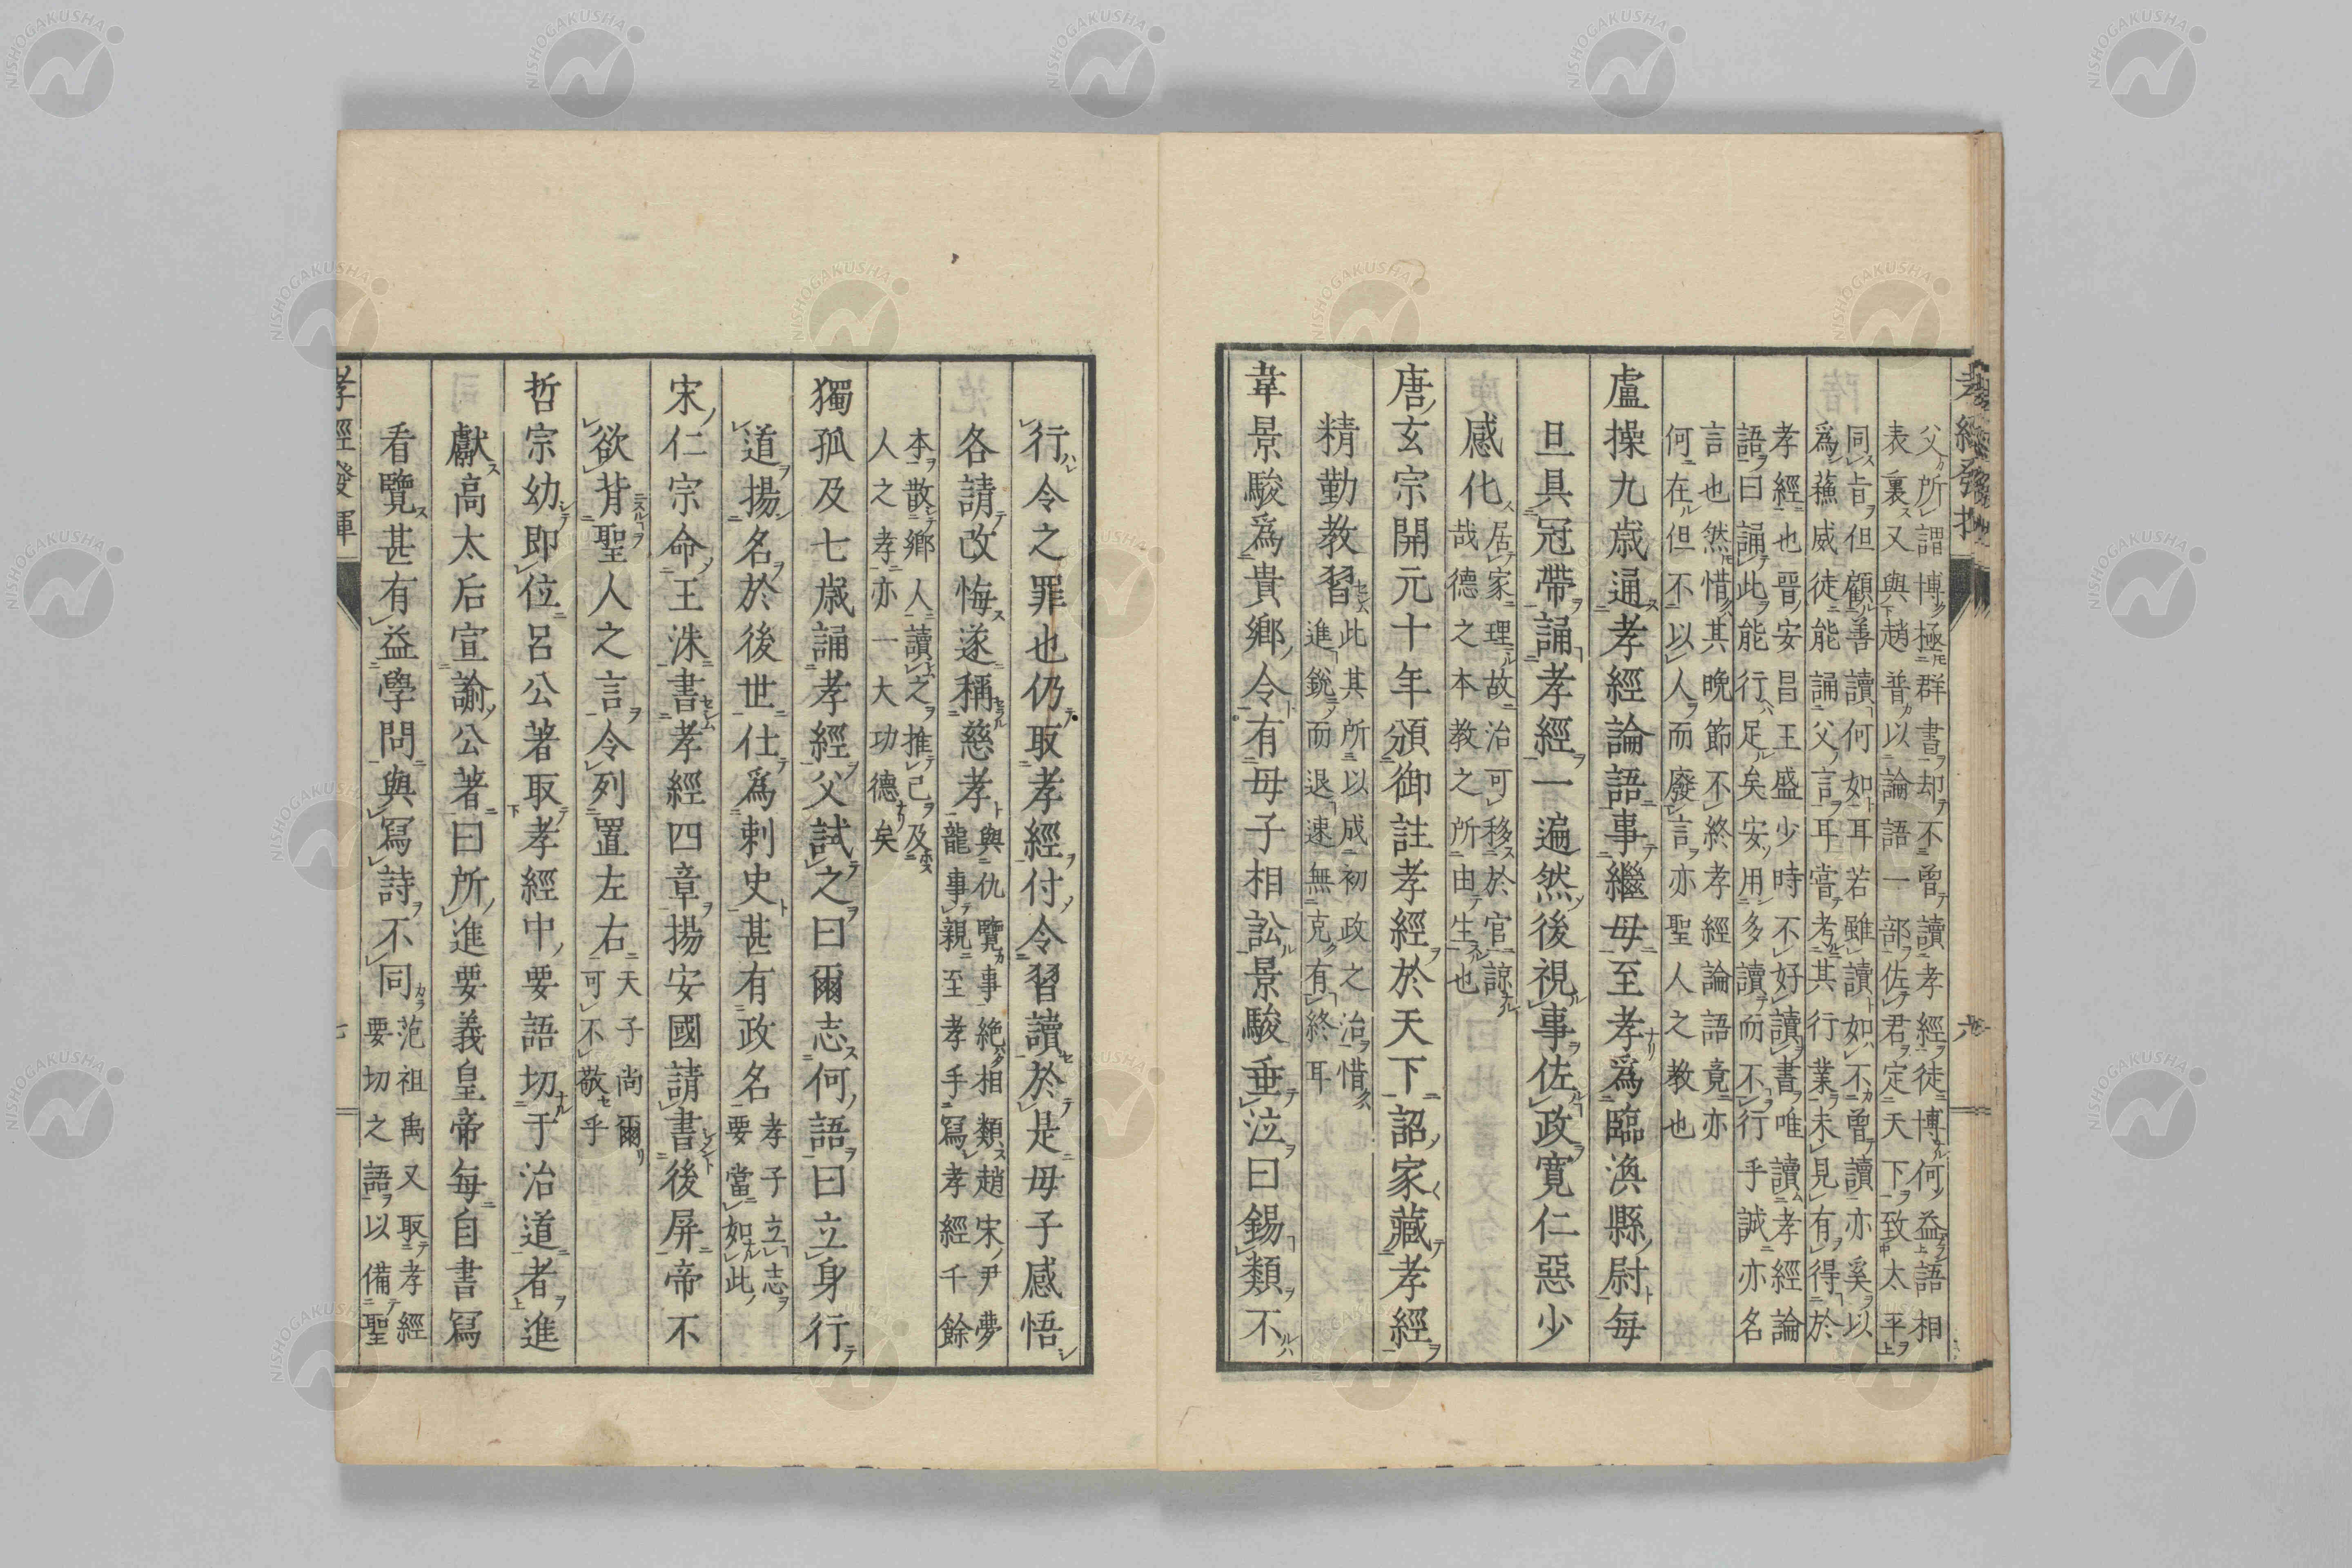 父所謂博極群書却不曾讀孝經徒博何益語相
表裏又與趙普以論語一部佐君定天下致太平
同旨但顧善讀何如耳若雖讀如不曾讀亦奚以
爲蘓威徒能誦父言耳嘗考其行業未見有得於
孝經也晋安昌王盛少時不好讀書唯讀孝經論
語曰誦此能行足矣安用多讀而不行乎誠亦名
言也然惜其晩節不終孝經論語竟亦
何在但不以人而廢言亦聖人之教也
盧操九歳通孝經論語事繼母至孝爲臨渙縣尉每
旦具冠帶誦孝經一遍然後視事佐政寛仁惡少
感化居家理故治可移於官諒
哉德之本教之所由生也
唐玄宗開元十年頒御註孝經於天下詔家藏孝經
精勤教習此其所以成初政之治惜
進銳而退速無克有終耳
韋景駿爲貴鄉令有母子相訟景駿垂泣曰錫類不
行令之罪也仍取孝經付令習讀於是母子感悟
各請改悔遂稱慈孝與仇覽事絶相類趙宋尹夢
龍事親至孝手寫孝經千餘
本散鄉人讀之推己及
人之孝亦一大功德矣
獨孤及七歳誦孝經父試之曰爾志何語曰立身行
道揚名於後世仕爲刺史甚有政名孝子立志
要當如此
宋仁宗命王洙書孝經四章揚安國請書後屏帝不
欲背聖人之言令列置左右天子尚爾
可不敬乎
哲宗幼即位呂公著取孝經中要語切于治道者進
獻高太后宣諭公著曰所進要義皇帝每自書寫
看覽甚有益學問與寫詩不同范祖禹又取孝經
要切之語以備聖
孝經發揮
七